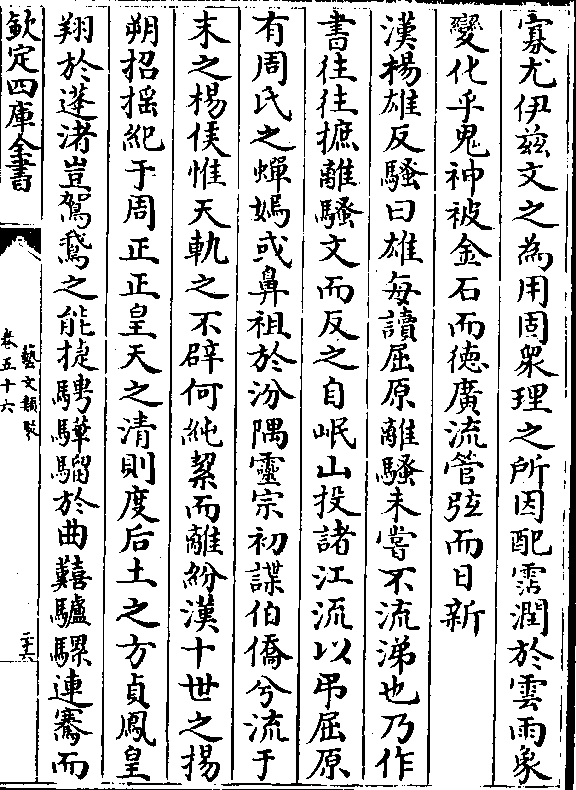 寡尤伊兹文之為用固衆理之所因配霑潤於雲雨象
變化乎鬼神被金石而徳廣流管弦而日新
漢楊雄反騷曰雄每讀屈原離騷未嘗不流涕也乃作
書往往摭離騷文而反之自岷山投諸江流以弔屈原
有周氏之蟬嫣或鼻祖於汾隅靈宗初諜伯僑兮流于
末之楊侯惟天軌之不辟何純絜而離紛漢十世之揚
朔招揺紀于周正正皇天之清則度后土之方貞鳳皇
翔於蓬渚豈駕鵞之能捷騁驊騮於曲囏驢騾連蹇而
欽定四庫全書
藝文類聚
卷五十六
二十六